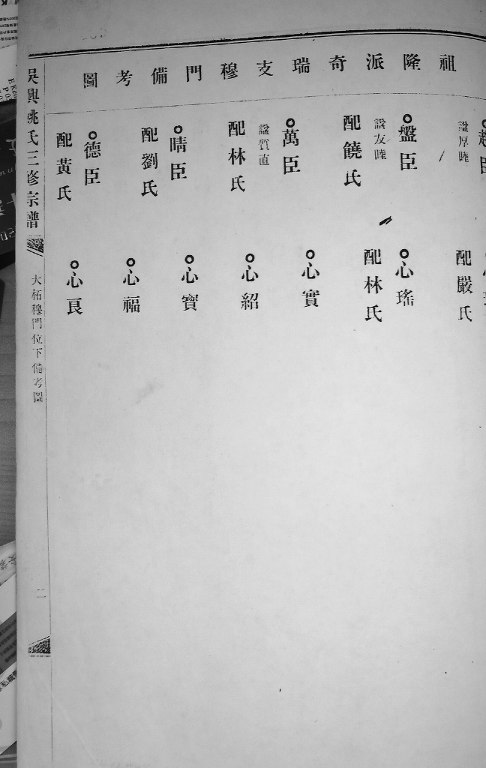 祖隆派奇瑞支穆門備考圖
趙臣
諡厚睦
配嚴氏
盤臣
諡友睦
配饒氏
心瑤
配林氏
萬臣
諡質直
配林氏
心實
心紹
晴臣
配劉氏
心寶
心福
德臣
配黃氏
心良
吳興姚氏三修宗譜
大柘穆門位下備考圖
二